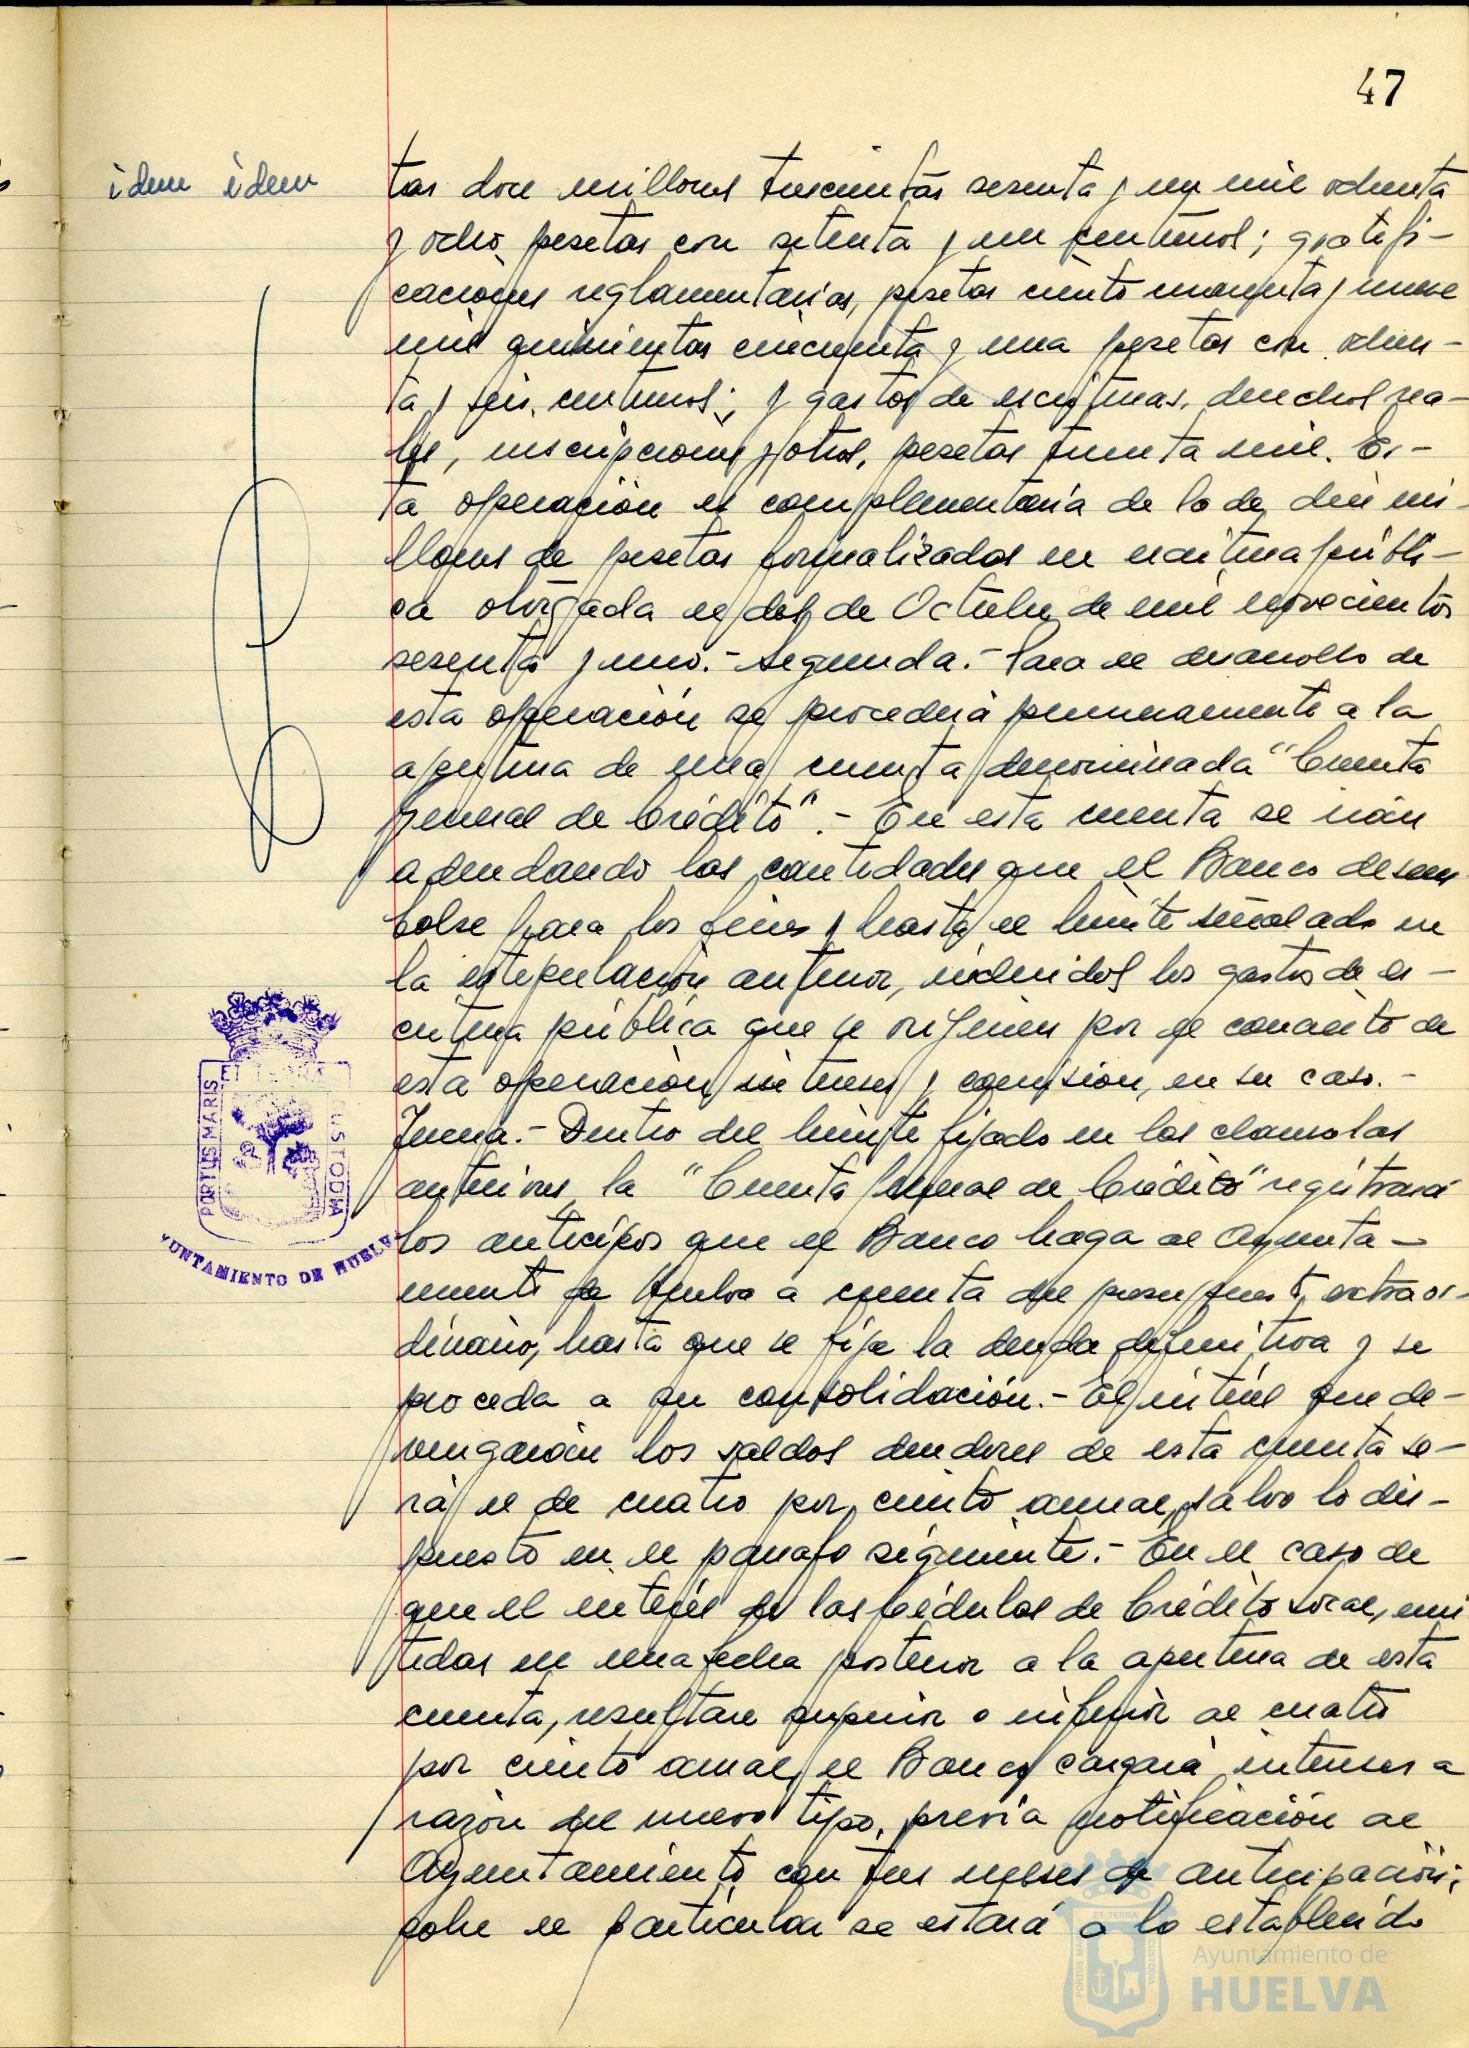 47
idem idem
tas doce millones trescientas sesenta y un mil ochenta
y ocho pesetas con setenta y un céntimos; gratifi-
caciones reglamentarias, pesetas ciento cuarenta y nueve
mil quinientas cincuenta y una pesetas con ochen-
ta y seis céntimos; y gastos de escrituras, derechos rea-
les, inscripciones y otros, pesetas treinta mil. Es-
ta operación es complementaria de la de diez mi-
llones de pesetas formalizadas en escritura públi-
ca otorgada el dos de Octubre de mil novecientos
sesenta y uno.- Segunda.- Para el desarrollo de
esta operación se procederá primeramente a la
apertura de una cuenta denominada "Cuenta
General de Crédito".- En esta cuenta se irán
adeudando las cantidades que el Banco desem
bolse para los fines y hasta el límite señalado en
la estipulación anterior, incluidos los gastos de es-
critura pública que se originen por el concierto de
esta operación, intereses y comisión, en su caso.-
Tercera.- Dentro del límite fijado en las clausulas
anteriores la "Cuenta General de Crédito" registrará
los anticipos que el Banco haga al Ayunta-
miento de Huelva a cuenta del presupuesto extraor-
dinario, hasta que se fije la deuda definitiva y se
proceda a su consolidación.- El interés que de-
vengarán los saldos deudores de esta cuenta se-
rá el de cuatro por ciento anual, salvo lo dis-
puesto en el párrafo siguiente.- En el caso de
que el interés de las Cédulas de Crédito Local, emi
tidas en una fecha posterior a la apertura de esta
cuenta, resultare superior o inferior al cuatro
por ciento anual, el Banco cargará intereses a
razón del nuevo tipo, previa notificación al
Ayuntamiento con tres meses de anticipación;
sobre el particular se estará a lo establecido
PORTUS MARIS ET TERRAE CUSTODIA
AYUNTAMIENTO DE HUELVA
PORTUS MARIS ET TERRAE CUSTODIA
Ayuntamiento de
HUELVA